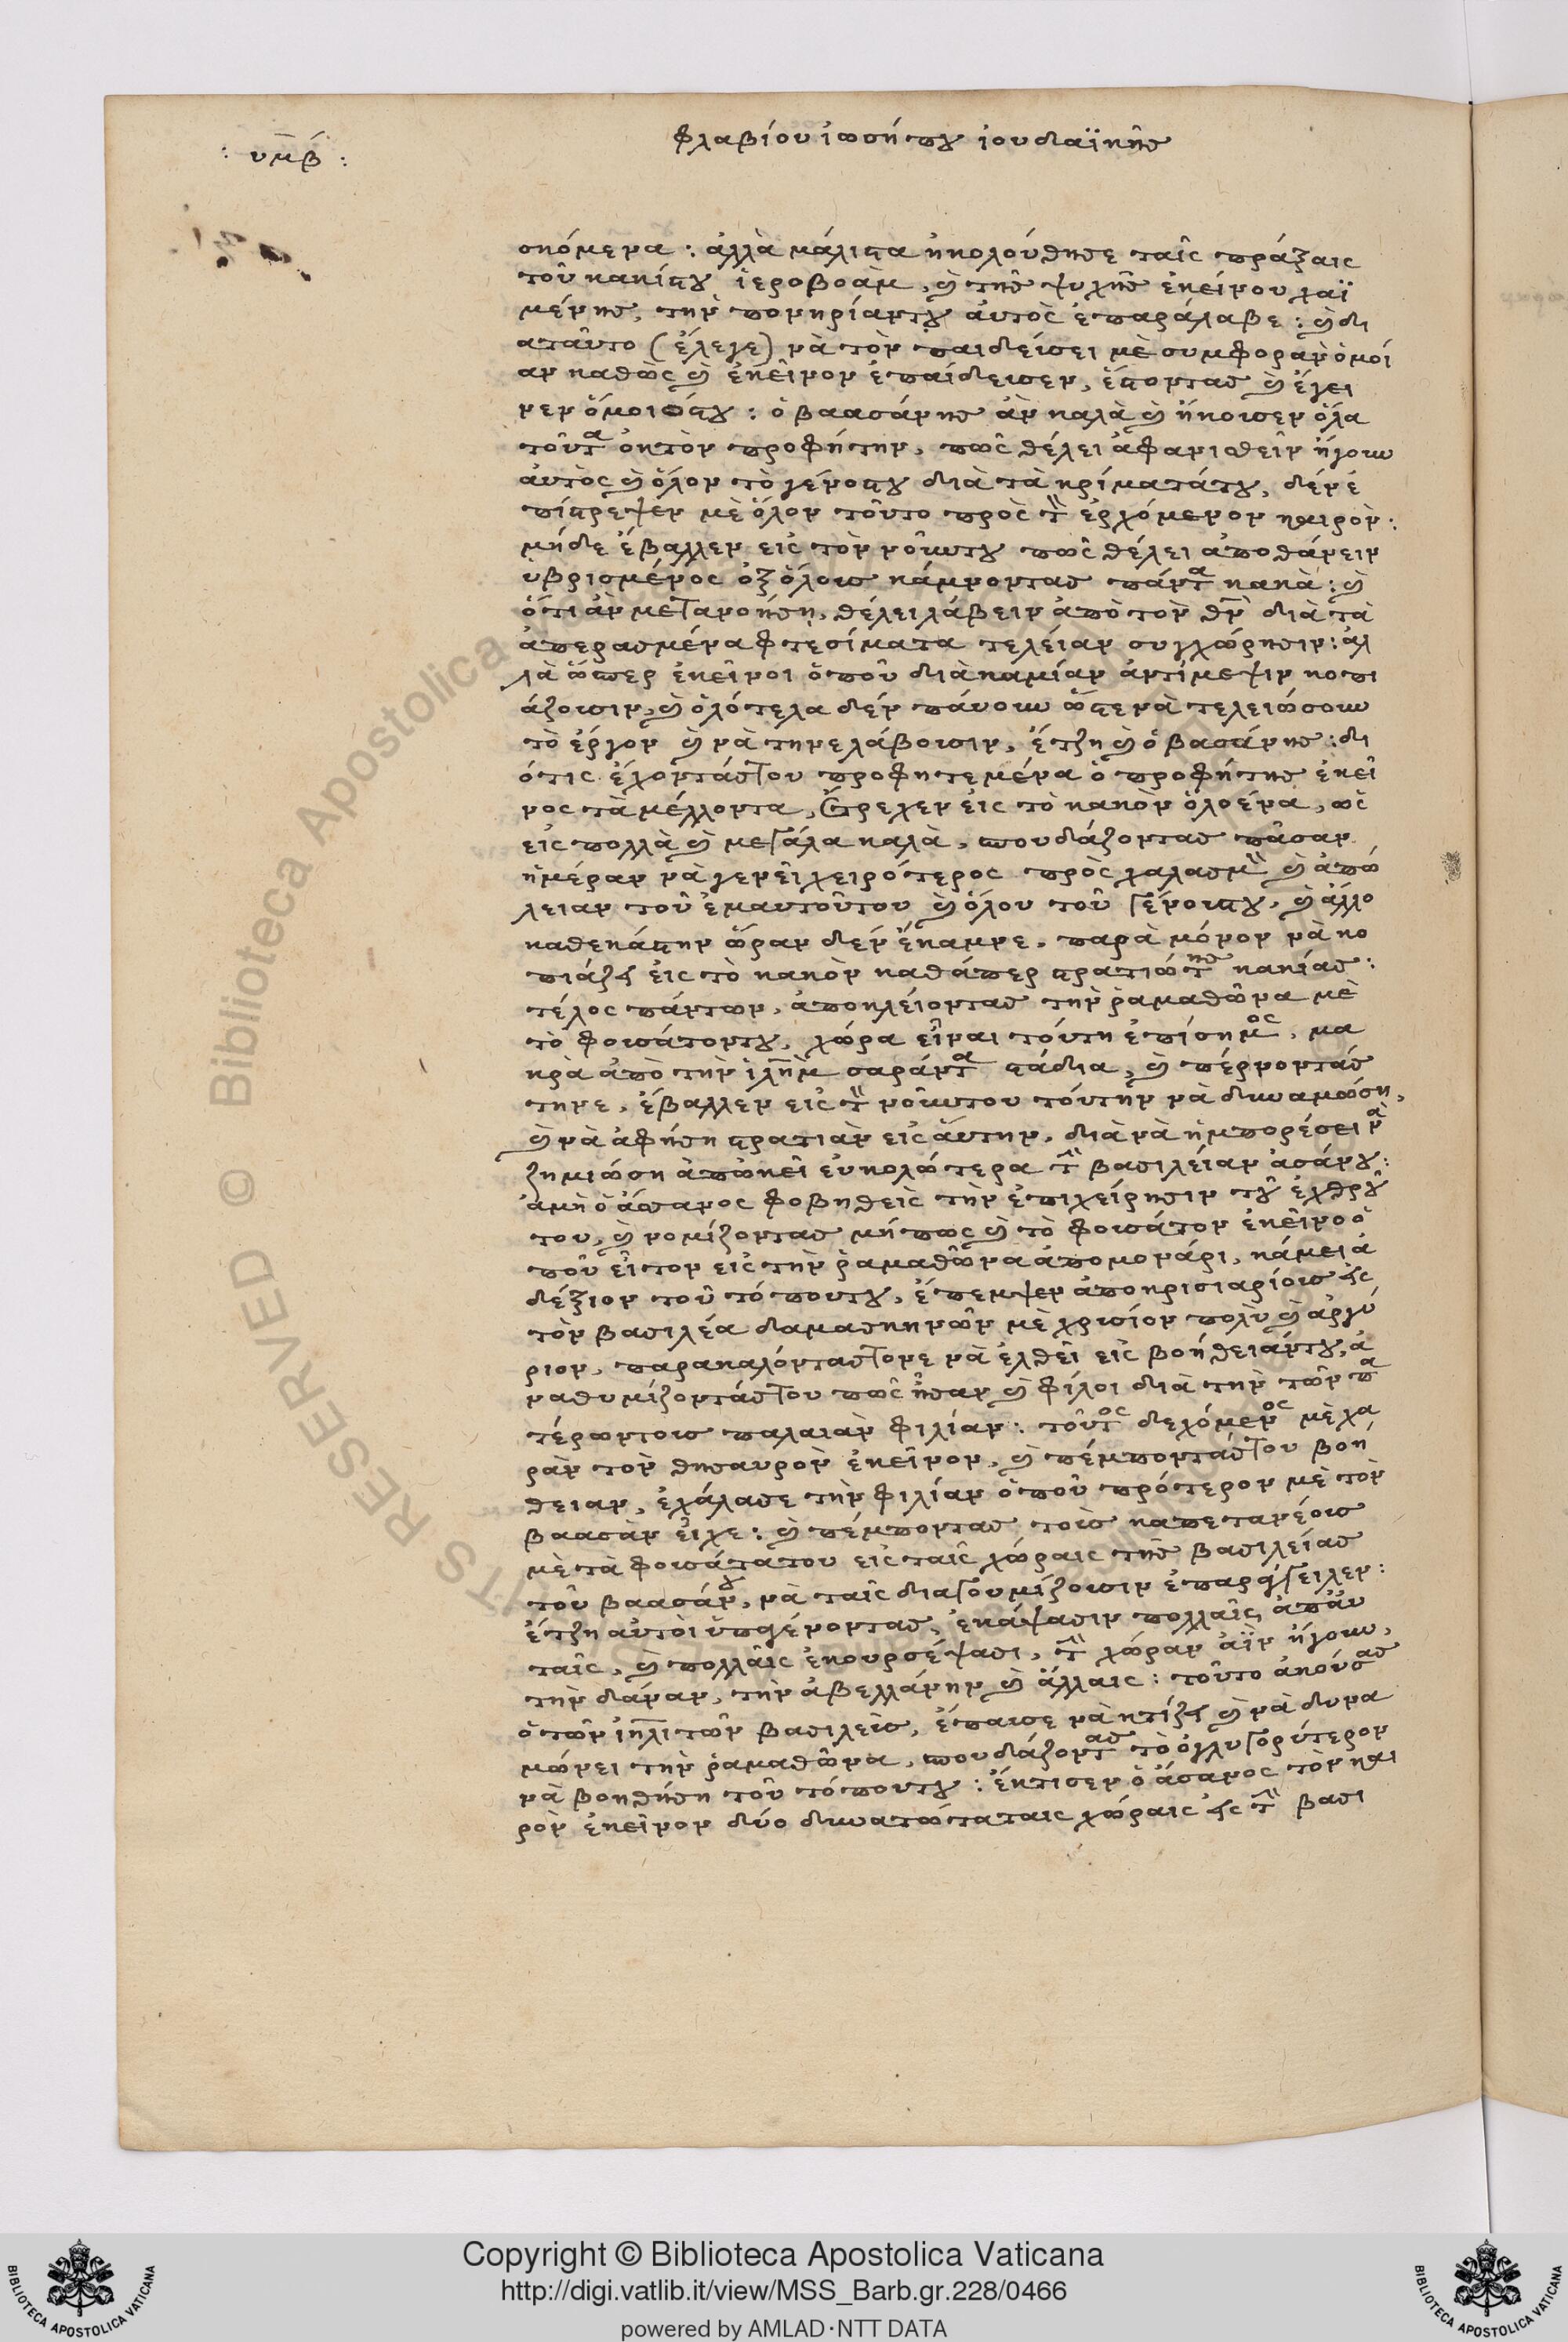 : υμβ :
φλαβίου ἰωσήπου ἰουδαϊκῆς
σκόμενα : ἀλλὰ μάλιστα ἠκολούθησε ταῖς πράξαις
τοῦ κακίστου ἱεροβοὰμ, καὶ τῆς ψυχῆς ἐκείνου χαϊ
μένης, τὴν πονηρίαντου αὐτὸς ἐπαράλαβε : καὶ δι
αταῦτο (ἔλεγε) νὰ τὸν παιδεύσει μὲ συμφορὰν ὁμοί
αν καθὼς καὶ ἐκεῖνον ἐπαίδευσεν, ἔστοντας καὶ ἔγει
νεν ὅμοιόςτου : ὁ βαασάνης ἂν καλὰ καὶ ἤκουσεν ὅλα
τοῦτα ἐκτὸν προφήτην, πῶς θέλει ἀφανισθεῖν ἤγουν
αὐτὸς καὶ ὅλον τὸ γένοςτου διὰ τὰ κρίματάτου, δέν ἐ
πίστρεψεν μὲ ὅλον τοῦτο πρὸς τὸν ἐρχόμενον καιρὸν :
μήδε ἔβαλλεν εἰς τὸν νοῦντου πῶς θέλει ἀποθάνειν
ὑβρισμένος ὀξ ὅλους κάμνοντας πάντα κακὰ : καὶ
ὅτι ἂν μετανοήση, θέλει λάβειν ἀπὸ τὸν θν διὰ τὰ
ἀπερασμένα φτεσίματα τελείαν συγχώρησιν : ἀλ
λὰ ὥσπερ ἐκεῖνοι ὁποῦ διὰ καμίαν ἀντίμεψιν κοπι
άζουσιν, καὶ ὁλότελα δέν πάυουν ὥστε νὰ τελειώσουν
τὸ ἔργον καὶ νὰ τηνελάβουσιν, ἔτζη καὶ ὁ βασάνης : δι
ότις ἐχοντάςτου προφητεμένα ὁ προφήτης ἐκεῖ
νος τὰ μέλλοντα, ἔτρεχεν εἰς τὸ κακὸν ὁλοένα, ὡς
εἰς πολλὰ καὶ μεγάλα καλὰ, σπουδάζοντας πᾶσαν
ἡμέραν νὰ γενεῖ χειρότερος πρὸς χαλασμὸν καὶ ἀπώ
λειαν τοῦ ἐμαυτοῦτου καὶ ὅλου τοῦ γένουςτου, καὶ ἄλλο
καθεκάστην ὥραν δεν ἔκαμνε, παρὰ μόνον νὰ κο
πιάζει εἰς τὸ κακὸν καθάπερ στρατιώτης κακίας :
τέλος πάντων, ἀποκλείοντας τὴν ῥαμαθῶνα μὲ
τὸ φουσάτοντου, χώρα εἶναι τούτη ἐπίσημος, μα
κρὰ ἀπὸ τὴν ἱλημ σαράντα στάδια, καὶ πέρνοντάς
τηνε, ἔβαλλεν εἰς τὸν νοῦντου τούτην νὰ δυναμώση,
καὶ νὰ ἀφήση στρατιὰν εἰς ἄυτην, διὰ νὰ ἠμπορέσει νὰ
ζημιώση ἀπὸκεῖ ἐυκολώτερα τὴν βασιλείαν ἀσάνου :
ἀμὴ ὁ ἄσσανος φοβηθεὶς τὴν ἐπιχείρησιν τοῦ ἐχθροῦ
του, καὶ νομίζοντας μήπως καὶ τὸ φουσάτον ἐκεῖνο ὁ
ποῦ εἶτον εἰς τὴν ῥαμαθῶνα ἀπομονάρι, κάμει ἀ
δέξιον τοῦ τόπουτου, ἔπεμψεν ἀποκρισιαρίους εἰς
τὸν βασιλέα δαμασκηνῶν μὲ χρυσίον πολὺ καὶ ἀργύ
ριον, παρακαλόνταςτονε νὰ ἐλθεῖ εἰς βοήθειάντου, ἀ
ναθυμίζοντάςτου πῶς ἦσαν καὶ φίλοι διὰ τὴν τῶν πα
τέρωντους παλαιὰν φιλίαν : τοῦτος δεχόμενος μὲ χα
ρὰν τὸν θησαυρὸν ἐκεῖνον, καὶ πέμποντάςτου βοή
θειαν, ἐχάλασε τὴν φιλίαν ὁποῦ πρότερον μὲ τὸν
βαασὰν εἶχε : καὶ πέμποντας τοὺς καπετανέους
μὲ τὰ φουσάτατου εἰς ταῖς χώραις τῆς βασιλείας
τοῦ βαασάνου, νὰ ταῖς διαγουμίζουσιν ἐπαράγγειλεν :
ἔτζη αὐτοὶ ὑπαγένοντας, ἐκάψασιν πολλαῖς ἀπὸ αὐ
ταῖς, καὶ πολλαῖς ἐκουρσέψασι, τὴν χώραν ἀῒν ἤγουν,
τὴν δάναν, τὴν ἀβελλάνην καὶ ἄλλαις : τοῦτο ἀκούσας
ὁ τῶν ἰηλιτῶν βασιλεὺς, ἔπαυσε νὰ κτίζει καὶ νὰ δυνα
μώνει τὴν ῥαμαθῶνα, σπουδάζοντας τὸ ὀγλυγορύτερον
νὰ βοηθήση τοῦ τόπουτου : ἔκτισεν ὁ ἄσανος τὸν και
ρὸν ἐκεῖνον δύο δυνατώταταις χώραις εἰς τὴν βασι
Copyright © Biblioteca Apostolica Vaticana
http://digi.vatlib.it/view/MSS_Barb.gr.228/0466
powered by AMLAD·NTT DATA